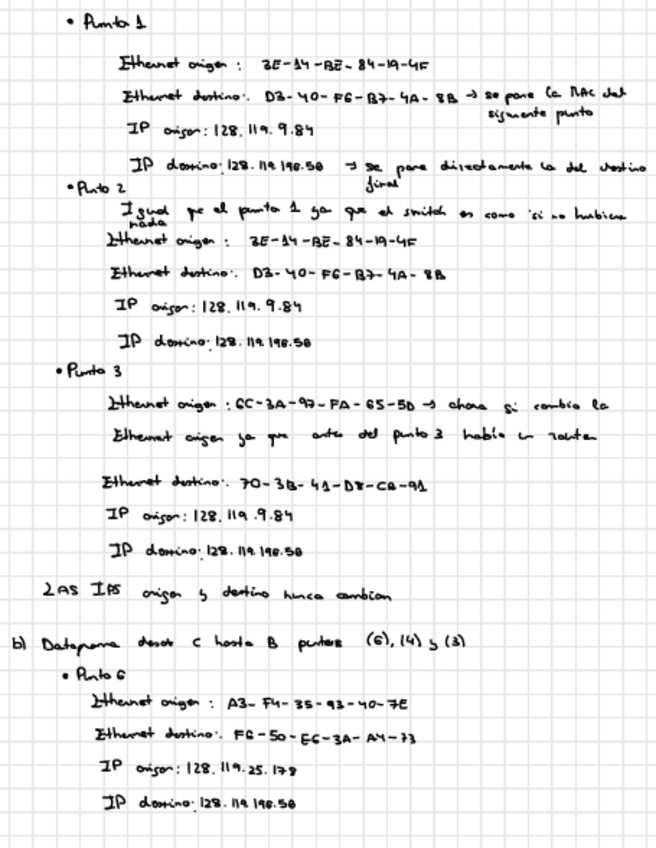 • Punto 1
Ethernet origen : 3E-14-BE-84-19-4F
Ethernet destino: D3-40-F6-B7-4A-8B → se pone la MAC del
siguiente punto
IP origen: 128.119.9.84
IP destino: 128.119.196.50 → se pone directamente la del destino
final
• Punto 2
Igual que el punto 1 ya que el switch es como si no hubiera
nada
Ethernet origen : 3E-14-BE-84-19-4F
Ethernet destino: D3-40-F6-B7-4A-8B
IP origen: 128.119.9.84
IP destino: 128.119.196.50
• Punto 3
Ethernet origen : 6C-3A-97-FA-65-5D → ahora si cambia la
Ethernet origen ya que antes del punto 3 había un router
Ethernet destino: 70-3B-41-D8-CB-91
IP origen: 128.119.9.84
IP destino: 128.119.196.50
LAS IPS origen y destino nunca cambian
b) Datagrama desde C hasta B puntos (6), (4) y (3)
• Punto 6
Ethernet origen : A3-F4-35-93-40-7E
Ethernet destino: F6-50-E6-3A-A4-73
IP origen: 128.119.25.178
IP destino: 128.119.196.50